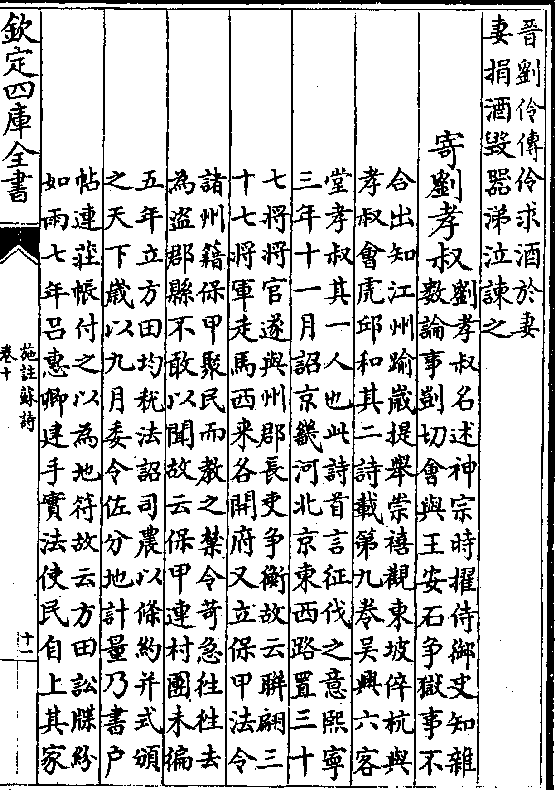 晋劉伶傳伶求酒於妻
妻捐酒毀器涕泣諫之
寄劉孝叔
劉孝叔名述神宗時擢侍御史知雜
數論事剴切會與王安石争獄事不
合出知江州踰嵗提舉崇禧觀東坡倅杭與
孝叔會虎邱和其二詩載第九卷吳興六客
堂孝叔其一人也此詩首言征伐之意熙寧
三年十一月詔京畿河北京東西路置三十
七將將官遂與州郡長吏争衡故云聯翩三
十七將軍走馬西来各開府又立保甲法令
諸州籍保甲聚民而教之禁令苛急往往去
為盗郡縣不敢以聞故云保甲連村團未徧
五年立方田均税法詔司農以條約并式頒
之天下嵗以九月委令佐分地計量乃書户
帖連莊帳付之以為地符故云方田訟牒紛
如雨七年呂惠卿建手實法使民自上其家
欽定四庫全書
施註蘇詩
卷十
十一